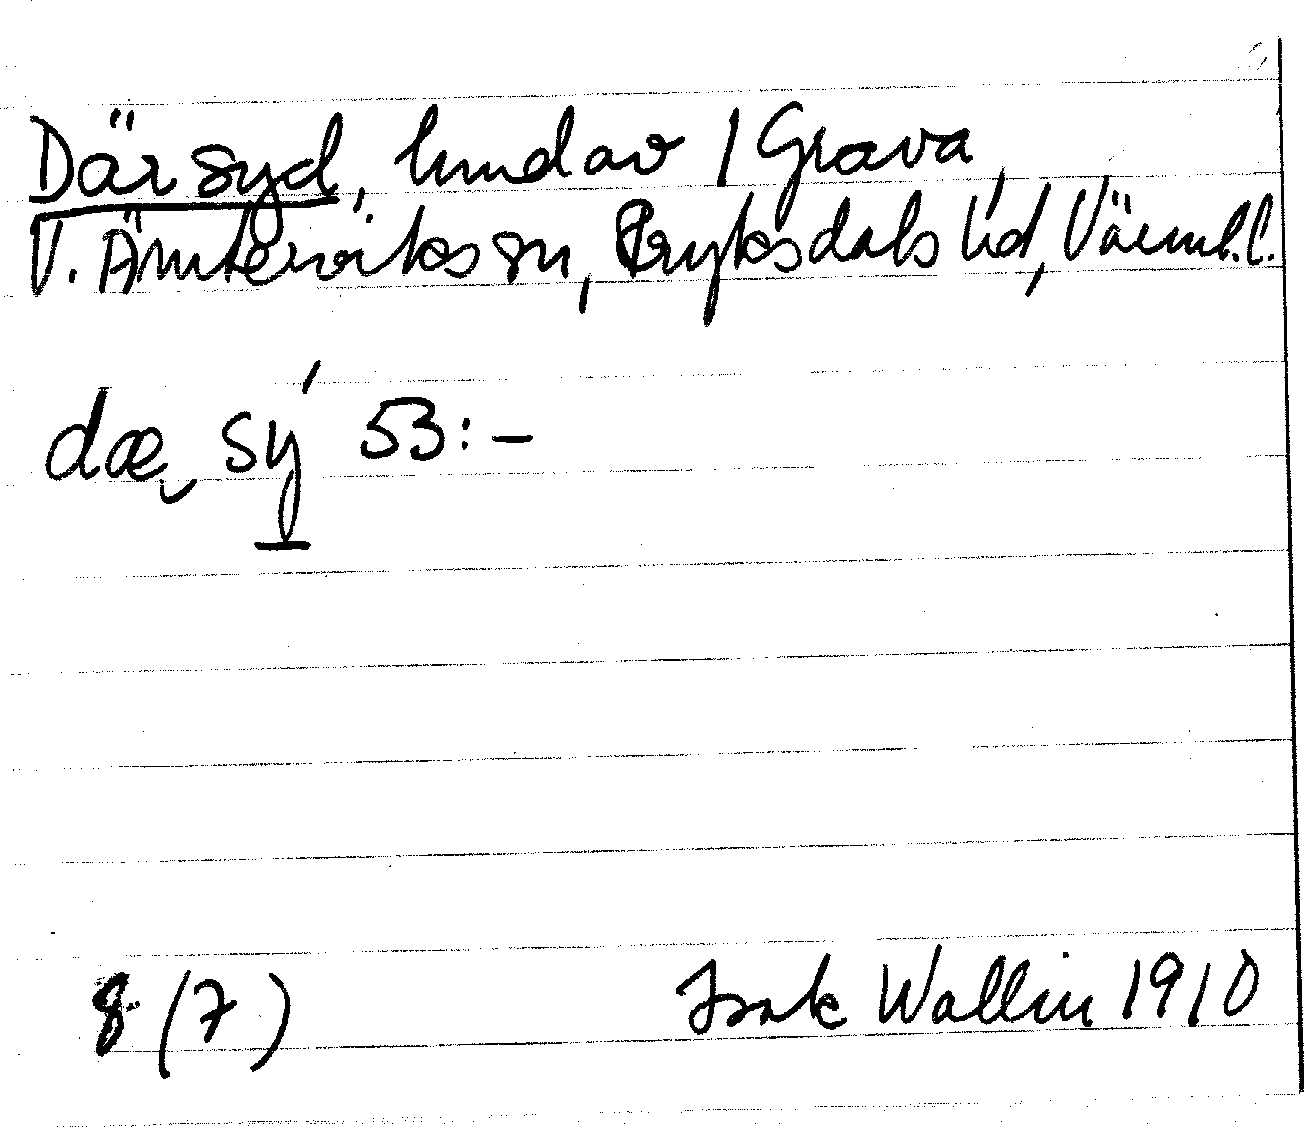 Där syd, lundav / Grava,
V. Ämterviks sn, Fryksdals hd, Värml. l.
dæ sý 53:–
8 (7) Isak Wallin 1910